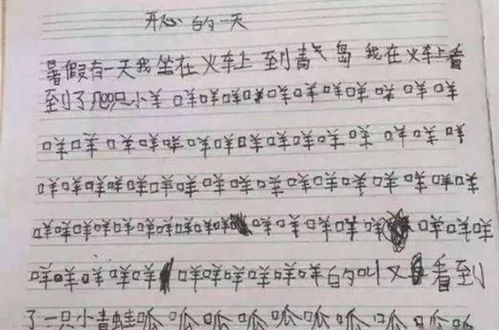 开心的一天
暑假有一天我坐在火车上 到青岛 我在火车上看
到了几只小羊 咩咩咩咩咩咩咩咩咩 咩咩
咩咩 咩咩咩咩咩咩咩咩咩咩 咩咩咩 咩
咩咩咩咩咩咩咩咩咩咩咩咩咩咩咩咩咩咩
咩咩咩咩咩咩咩咩 咩咩咩咩咩 咩咩咩
咩咩咩咩咩 咩咩咩咩咩咩的叫又看到
了一只小青蛙呱呱呱呱呱呱呱呱呱呱